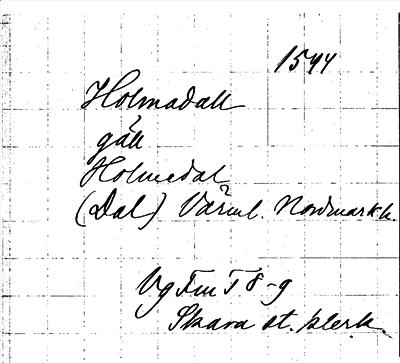 1544
Holmadall
gäll
Holmedal
(Dal) Värml. Nordmark h.
Vg Fm T 8-9
Skara st. klerk